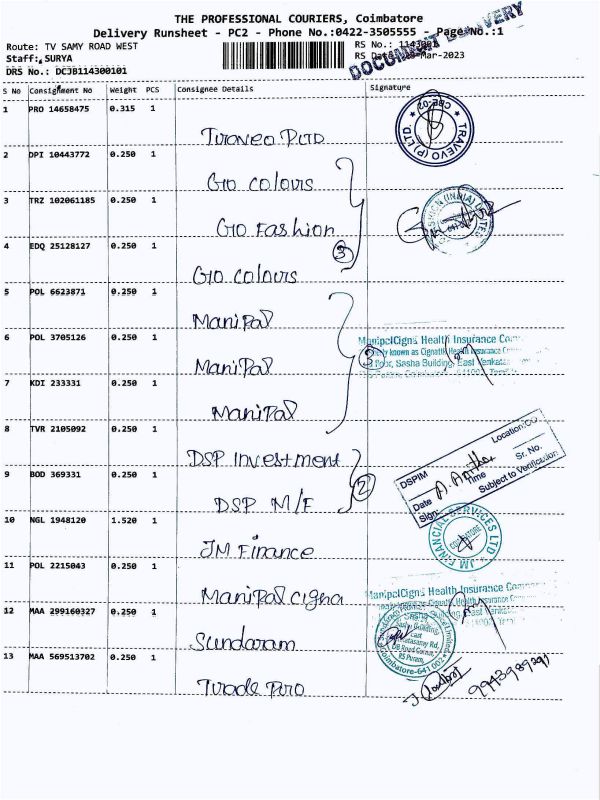 THE PROFESSIONAL COURIERS, Coimbatore
Delivery Runsheet - PC2 - Phone No.:0422-3505555 - Page No.:1
Route: TV SAMY ROAD WEST
RS No.:
Staff: SURYA
RS Date: -Mar-2023
DRS No.: DCJB114300101
DOCUMENT DELIVERY
S No Consignment No Weight PCS Consignee Details Signature
1 PRO 14658475 0.315 1
TRAVEVO (P) LTD
2 DPI 10443772 0.250 1
Gio Colours
3 TRZ 102061185 0.250 1
Gio Fashion
FASHION (INDIA) LIMITED
4 EDQ 25128127 0.250 1
3
Gio Colours
5 POL 6623871 0.250 1
Manipal
6 POL 3705126 0.250 1
ManipalCigna Health Insurance
3
Sasha Building, East
Manipal
7 KDI 233331 0.250 1
Manipal
8 TVR 2105092 0.250 1
DSP Investment
DSPIM Location:
Date Time Sr. No.
Sign: Subject to Verification
9 BOD 369331 0.250 1
2
DSP M/F
10 NGL 1948120 1.520 1
JM FINANCIAL SERVICES LTD
COIMBATORE
JM Finance
11 POL 2215043 0.250 1
ManipalCigna Health Insurance
Manipal Cigna
12 MAA 299160327 0.250 1
Sundaram
RS Puram,
Coimbatore-641 002
13 MAA 569513702 0.250 1
Trade Pro